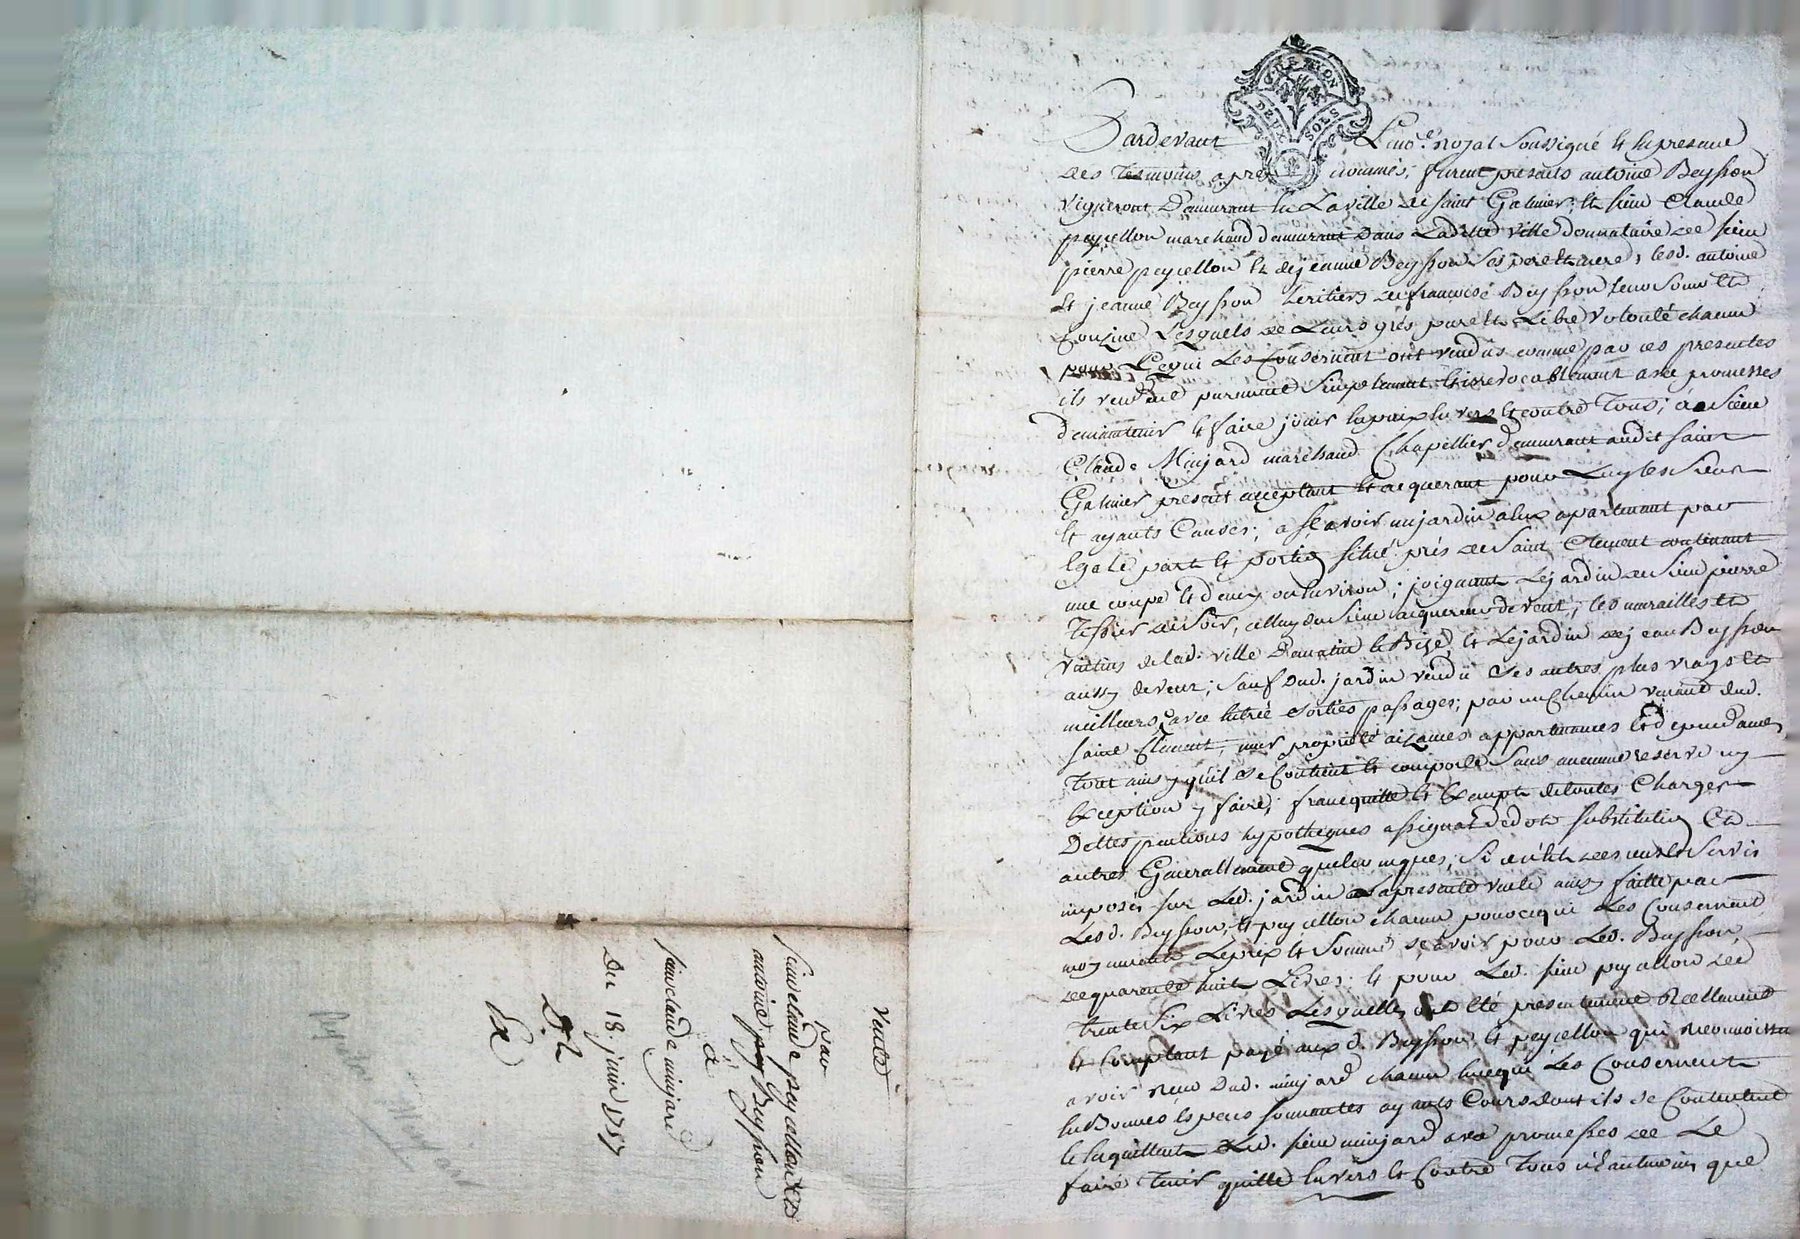 GE. LYON
DEUX SOLS
Pardevant Le no.re royal Soussigné Et En presence
des Tesmoins apres nommés, furent presents antoine Beysson
vigneront Demeurant En La ville de saint Galmier, Et sieur Claude
peycellon marchand demeurant Dans Laditte ville donnataire de sieur
pierre peycellon Et de jeanne Beysson ses pere Et mere, lesd. antoine
Et jeanne Beysson heritiers de francoise Beysson leur soeur Et
Cousine Lesquels de Leurs grés pure Et Libre volonté chacun
pour Ce qui Les Consernent ont vendus comme par ces presentes
ils vendent purement Simplement Et irrevocablement avec promesses
de maintenir Et faire jouir En paix Envers Et contre Tous; a sieur
Claude Minjard marchand Chapellier demeurant audit saint
Galmier present acceptant Et acquerant pour Luy les siens
Et ayants Causes; a sçavoir un jardin a Eux apartenant par
Egale part Et portion situé prés de Saint Clement contenant
une coupe Et demy ou Environ; joignant Le jardin du sieur pierre
Tessier de soir, celluy du sieur acquereur de vent, les murailles Et
de lad. ville De matin Et Bize, Et Le jardin de jean Beysson
aussy de vent; sauf Dud. jardin vendu Ses autres plus vrays Et
meilleurs, avec Entrée sorties passages; par un Chemin venant dud.
saint Clement, murs proprieté aizances appartenances Et dependances
Tout ainsy qu'il se Contient Et comporte Sans aucune reserve ny
Exception y faire; franc quitte Et Exempt de toutes Charges
Dettes pentions hypotheques assignat de dote substitution Et
autres Generallement quelconques; Si n'est des cens Et servis
imposés sur Led. jardin La presente vente ainsy faitte par
Lesd. Beysson, Et peycellon chacun pour ce qui Les Consernent
moyennant Le prix Et Somme, sçavoir pour Led. Beysson,
de quarente huit Livres; Et pour Led. sieur peycellon de
trente six Livres Lesquelles ont Eté presentement Reellement
Et Comptant payé aux d. Beysson, Et peycellon qui reconnoissent
avoir reçu Dud. minjard chacun En ce qui Les Consernent
En Bonnes Especes sonnantes ayants Cours dont ils se Contentent
Et En quittent Led. sieur minjard avec promesses de Le
faire Tenir quitte Envers Et Contre Tous neantmoins que
vente
par
sieur claude peycellon Et
antoine Beysson
à
sieur claude minjard
Du 18. juin 1757
Ex